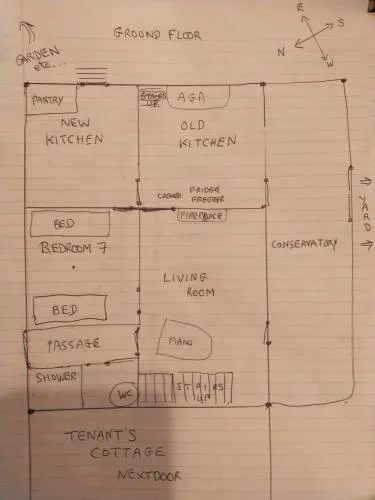 GROUND FLOOR
E
S
N
W
GARDEN
etc...
PANTRY
STAIRS
UP
AGA
NEW
KITCHEN
OLD
KITCHEN
COOKER
FRIDGE
FREEZER
FIREPLACE
YARD
BED
BEDROOM 7
CONSERVATORY
LIVING
ROOM
BED
PASSAGE
PIANO
SHOWER
WC
STAIRS
UP
TENANT'S
COTTAGE
NEXTDOOR